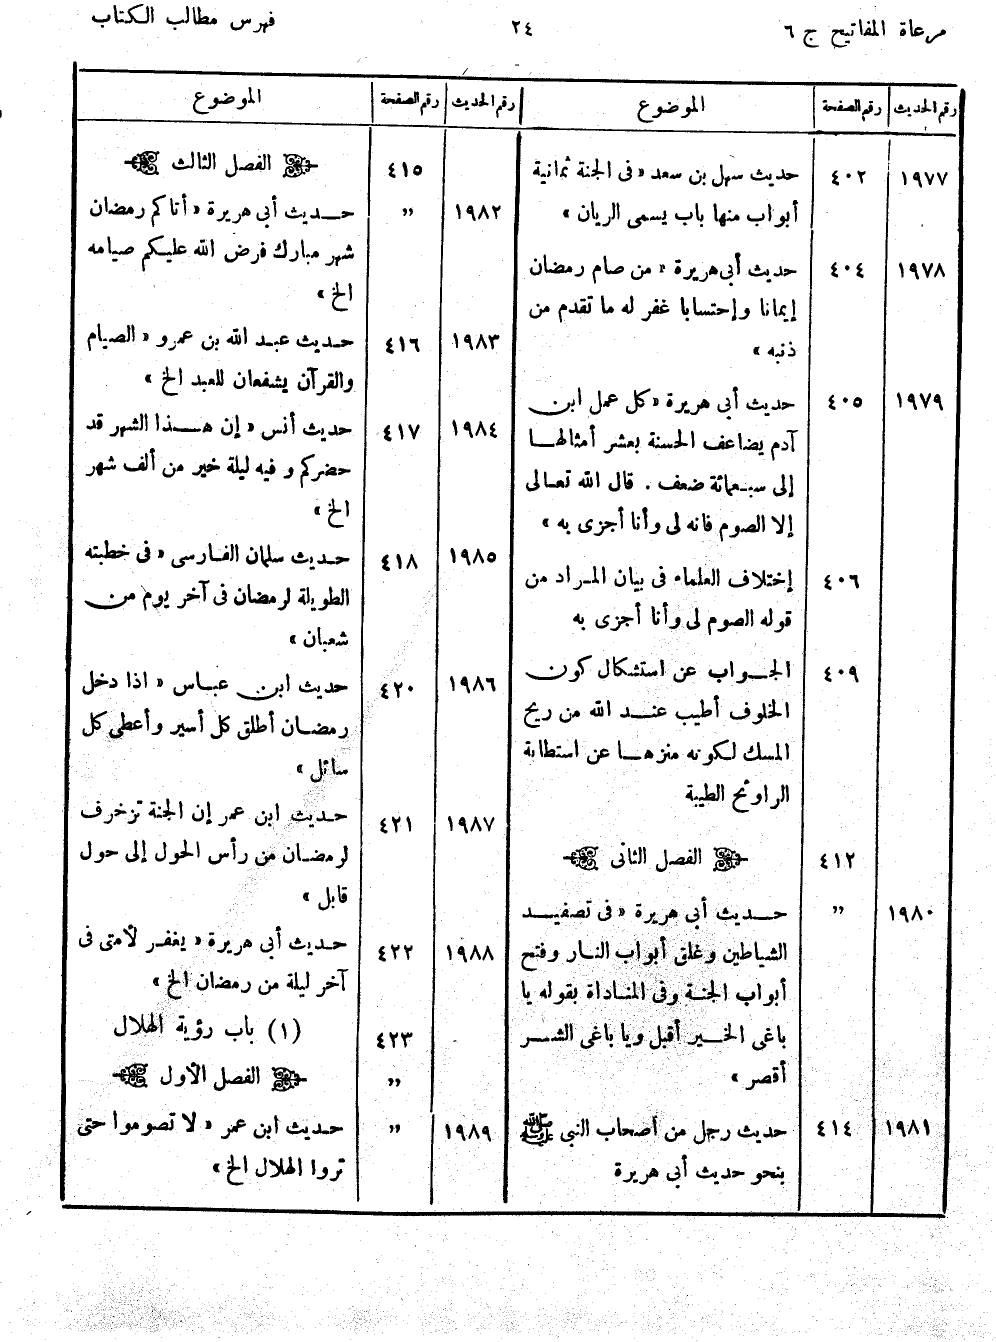 مرعاة المفاتيح ج ٦ ٢٤ فهرس مطالب الكتاب
رقم الحديث رقم الصفحة الموضوع
١٩٧٧ ٤٠٢ حديث سهل بن سعد « فى الجنة ثمانية
أبواب منها باب يسمى الريان »
١٩٧٨ ٤٠٤ حديث أبى هريرة « من صام رمضان
إيمانا وإحتسابا غفر له ما تقدم من
ذنبه »
١٩٧٩ ٤٠٥ حديث أبى هريرة « كل عمل ابن
آدم يضاعف الحسنة بعشر أمثالها
إلى سبعمائة ضعف . قال الله تعالى
إلا الصوم فانه لى وأنا أجزى به »
٤٠٦ إختلاف العلماء فى بيان المراد من
قوله الصوم لى وأنا أجزى به
٤٠٩ الجواب عن استشكال كون
الخلوف أطيب عند الله من ريح
المسك لكونه منزها عن استطابة
الراوئح الطيبة
٤١٢ الفصل الثانى
١٩٨٠ " حديث أبى هريرة « فى تصفيد
الشياطين وغلق أبواب النار وفتح
أبواب الجنة وفى المناداة بقوله يا
باغى الخير أقبل ويا باغى الشر
أقصر »
١٩٨١ ٤١٤ حديث رجل من أصحاب النبى ﷺ
بنحو حديث أبى هريرة
رقم الحديث رقم الصفحة الموضوع
٤١٥ الفصل الثالث
١٩٨٢ " حديث أبى هريرة « أتاكم رمضان
شهر مبارك فرض الله عليكم صيامه
الخ »
١٩٨٣ ٤١٦ حديث عبد الله بن عمرو « الصيام
والقرآن يشفعان للعبد الخ »
١٩٨٤ ٤١٧ حديث أنس « إن هذا الشهر قد
حضركم و فيه ليلة خير من ألف شهر
الخ »
١٩٨٥ ٤١٨ حديث سلمان الفارسى « فى خطبته
الطويلة لرمضان فى آخر يوم من
شعبان »
١٩٨٦ ٤٢٠ حديث ابن عباس « اذا دخل
رمضان أطلق كل أسير وأعطى كل
سائل »
١٩٨٧ ٤٢١ حديث ابن عمر إن الجنة تزخرف
لرمضان من رأس الحول إلى حول
قابل »
١٩٨٨ ٤٢٢ حديث أبى هريرة « يغفر لأمتى فى
آخر ليلة من رمضان الخ »
٤٢٣ (١) باب رؤية الهلال
" الفصل الأول
١٩٨٩ " حديث ابن عمر « لا تصوموا حتى
تروا الهلال الخ »